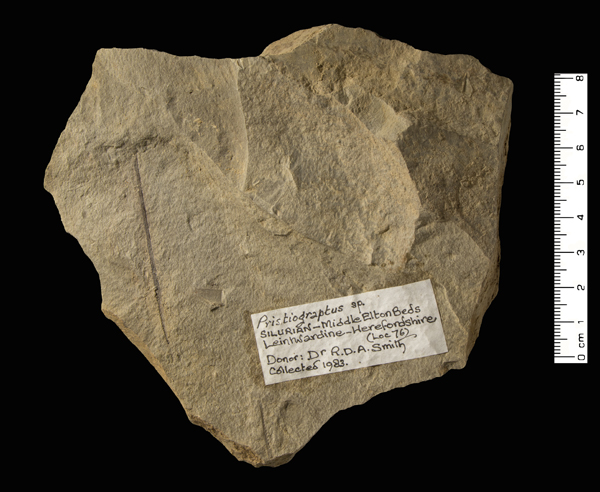 Pristiograptus sp.
SILURIAN - Middle Elton Beds
Leintwardine - Herefordshire
(Loc 76)
Donor: Dr R.D.A. Smith
Collected 1983.
8
7
6
5
4
3
2
1
0 cm